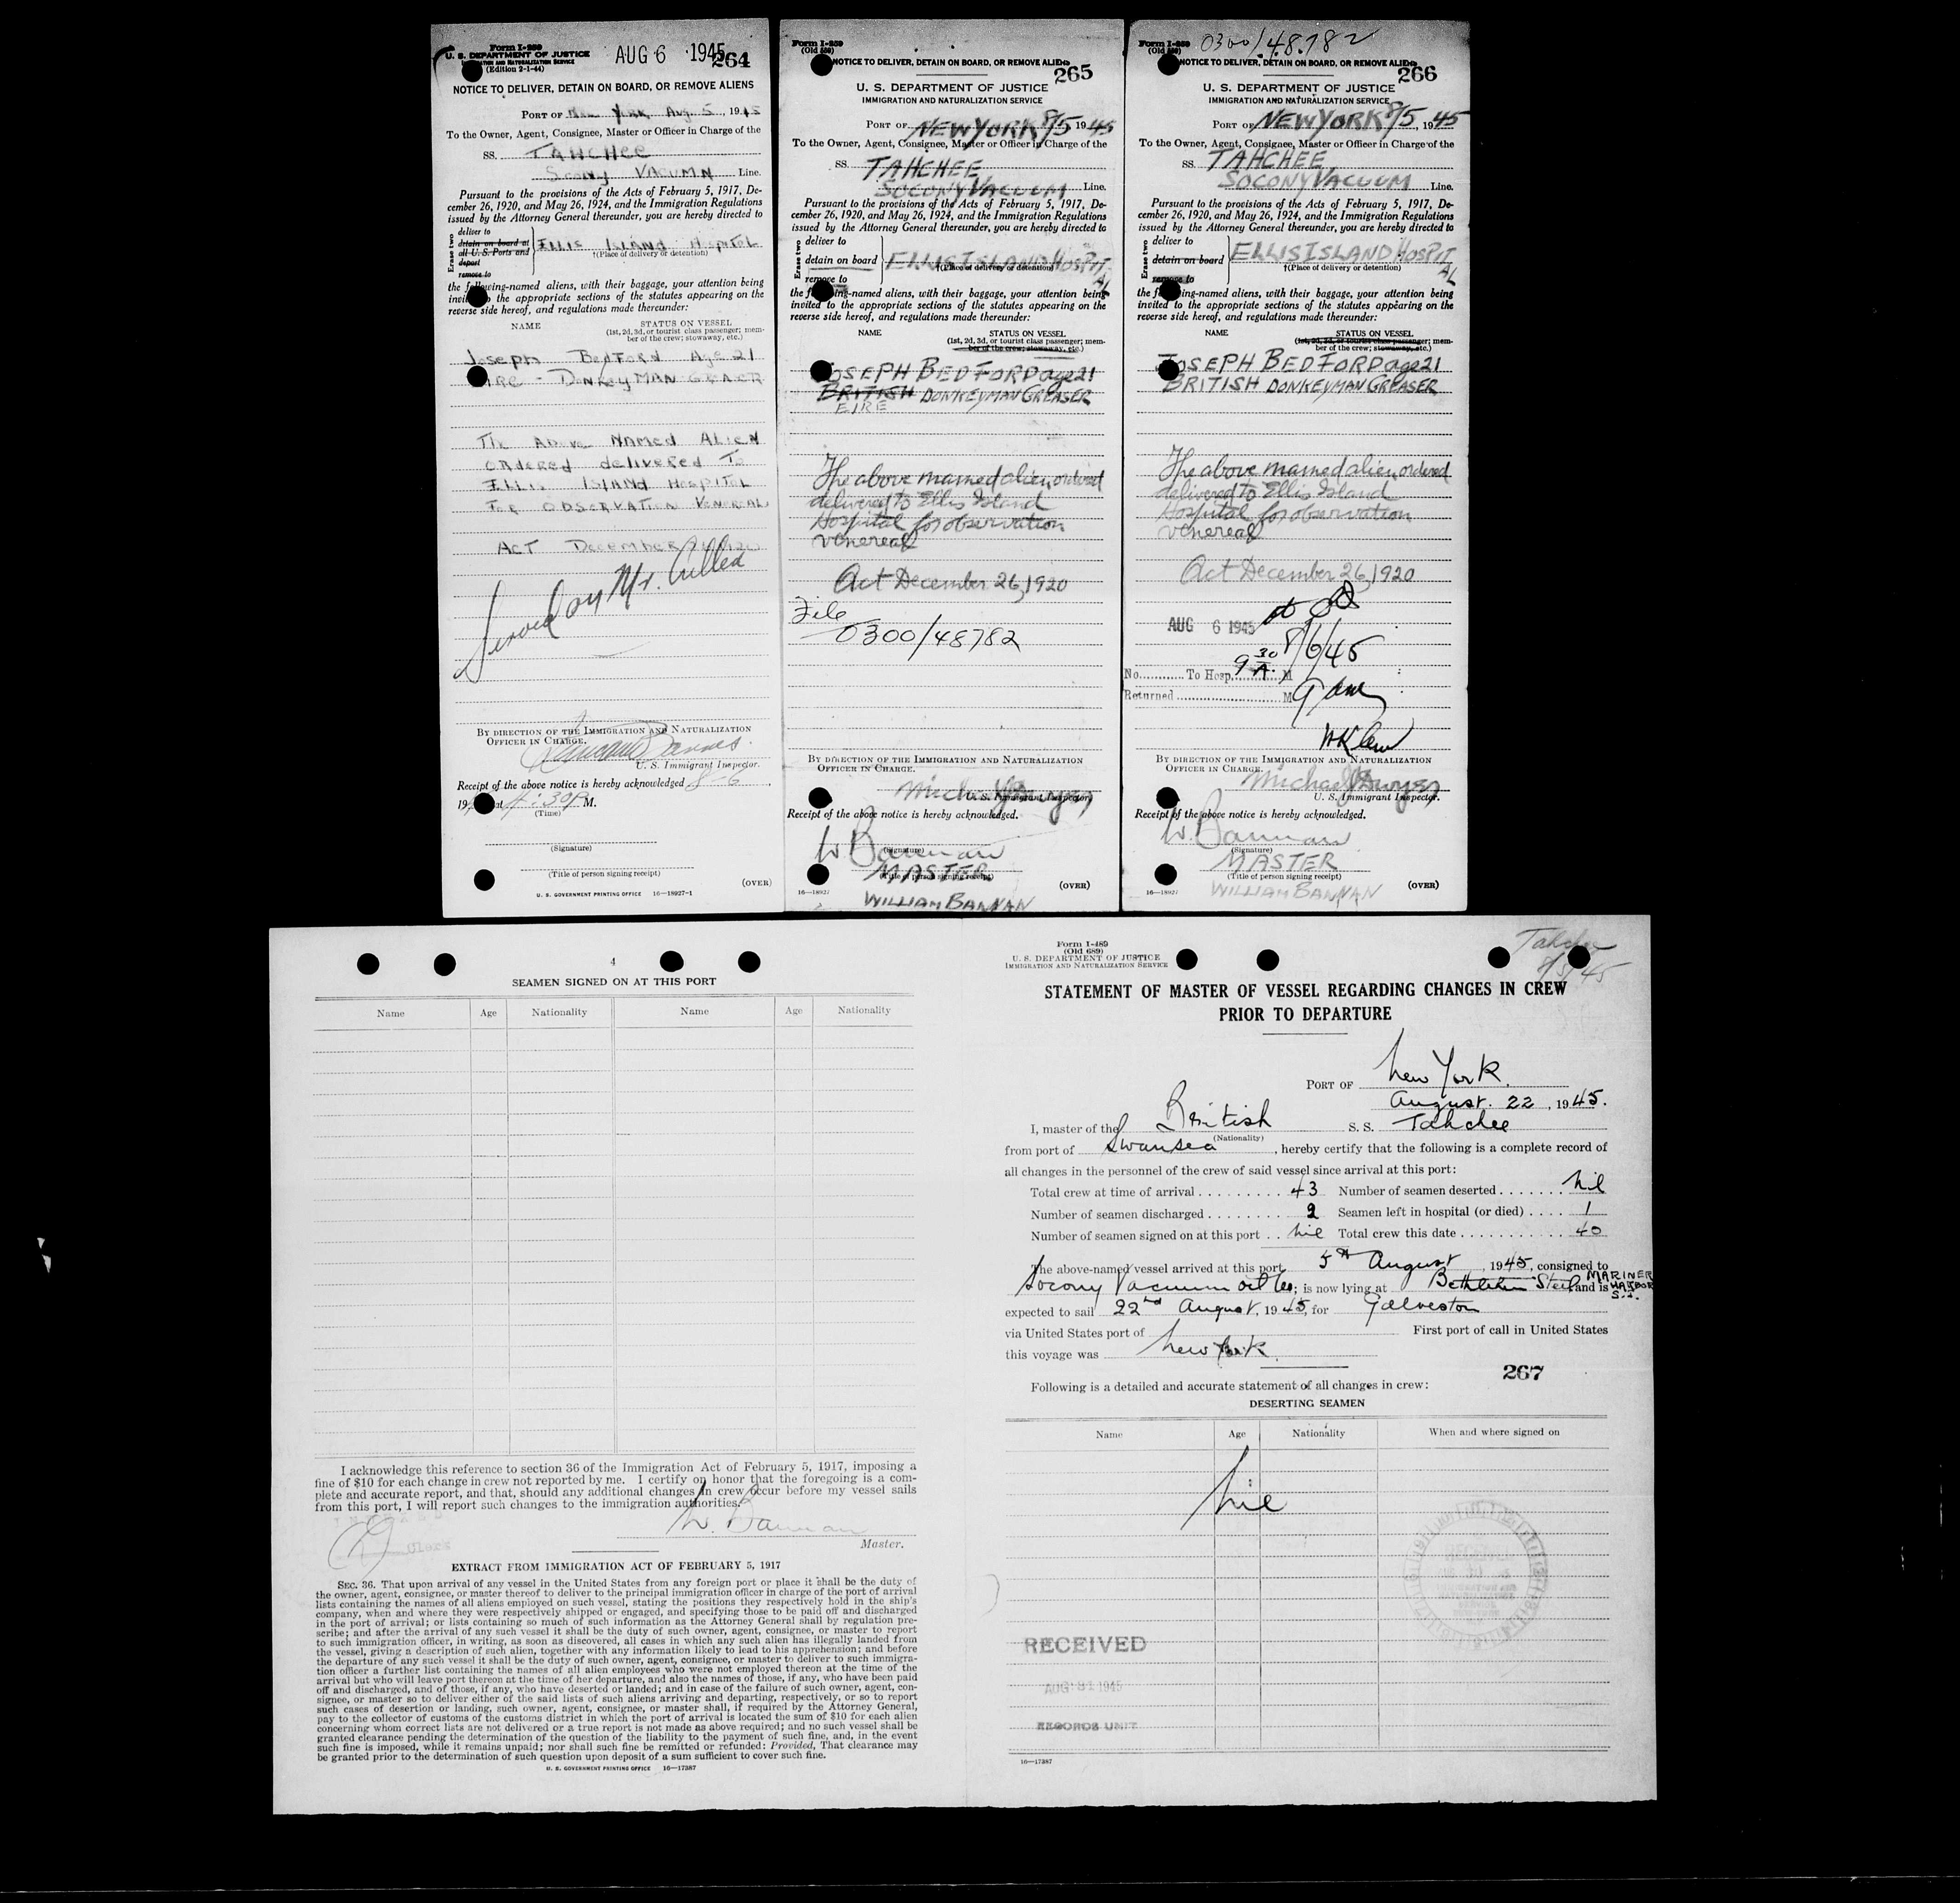 Form I-259
U. S. DEPARTMENT OF JUSTICE
IMMIGRATION AND NATURALIZATION SERVICE
(Edition 2-1-44)
AUG 6 1945
264
NOTICE TO DELIVER, DETAIN ON BOARD, OR REMOVE ALIENS
PORT OF New York, Aug. 5, 1945
To the Owner, Agent, Consignee, Master or Officer in Charge of the
SS. TAHCHEE
Scony VACUMN Line.
Pursuant to the provisions of the Acts of February 5, 1917, De-
cember 26, 1920, and May 26, 1924, and the Immigration Regulations
issued by the Attorney General thereunder, you are hereby directed to
Erase two
deliver to
detain on board at
all U. S. Ports and
deport
remove to
ELLIS ISLAND HospITAL
†(Place of delivery or detention)
the following-named aliens, with their baggage, your attention being
invited to the appropriate sections of the statutes appearing on the
reverse side hereof, and regulations made thereunder:
NAME STATUS ON VESSEL
(1st, 2d, 3d, or tourist class passenger; mem-
ber of the crew; stowaway, etc.)
Joseph BedFord Age 21
EIRE - DonkeyMAN GREASER
The Above NAMed ALIEN
ORdered delivered To
ELLIS ISLAND HospITAL
For OBSERVATION VENEREAL
ACT December 26, 1920
Served on Mr.
BY DIRECTION OF THE IMMIGRATION AND NATURALIZATION
OFFICER IN CHARGE.
U. S. Immigrant Inspector.
Receipt of the above notice is hereby acknowledged 8-6,
19 at 4:30 P M.
(Time)
(Signature)
(Title of person signing receipt)
U. S. GOVERNMENT PRINTING OFFICE 16—18927-1
(OVER)
Form I-259
(Old 259)
NOTICE TO DELIVER, DETAIN ON BOARD, OR REMOVE ALIENS
265
U. S. DEPARTMENT OF JUSTICE
IMMIGRATION AND NATURALIZATION SERVICE
PORT OF NEW YORK 8/5 1945
To the Owner, Agent, Consignee, Master or Officer in Charge of the
SS. TAHCHEE
SOCONY VACUUM Line.
Pursuant to the provisions of the Acts of February 5, 1917, De-
cember 26, 1920, and May 26, 1924, and the Immigration Regulations
issued by the Attorney General thereunder, you are hereby directed to
Erase two
deliver to
detain on board
remove to
ELLIS ISLAND HOSPITAL
†(Place of delivery or detention)
the following-named aliens, with their baggage, your attention being
invited to the appropriate sections of the statutes appearing on the
reverse side hereof, and regulations made thereunder:
NAME STATUS ON VESSEL
(1st, 2d, 3d, or tourist class passenger; mem-
ber of the crew; stowaway, etc.)
JOSEPH BEDFORD age 21
BRITISH DONKEYMAN GREASER
EIRE
The above named alien ordered
delivered to Ellis Island
Hospital for observation
venereal
Act December 26, 1920
File
0300/48782
BY DIRECTION OF THE IMMIGRATION AND NATURALIZATION
OFFICER IN CHARGE.
U. S. Immigrant Inspector.
Receipt of the above notice is hereby acknowledged.
W. Bannan
(Signature)
MASTER
(Title of person signing receipt)
16—18927
(OVER)
WILLIAM BANNAN
Form I-259
(Old 259)
0300/48.782
NOTICE TO DELIVER, DETAIN ON BOARD, OR REMOVE ALIENS
266
U. S. DEPARTMENT OF JUSTICE
IMMIGRATION AND NATURALIZATION SERVICE
PORT OF NEW YORK 8/5, 1945
To the Owner, Agent, Consignee, Master or Officer in Charge of the
SS. TAHCHEE
SOCONY VACUUM Line.
Pursuant to the provisions of the Acts of February 5, 1917, De-
cember 26, 1920, and May 26, 1924, and the Immigration Regulations
issued by the Attorney General thereunder, you are hereby directed to
Erase two
deliver to
detain on board
remove to
ELLIS ISLAND HOSPITAL
†(Place of delivery or detention)
the following-named aliens, with their baggage, your attention being
invited to the appropriate sections of the statutes appearing on the
reverse side hereof, and regulations made thereunder:
NAME STATUS ON VESSEL
(1st, 2d, 3d, or tourist class passenger; mem-
ber of the crew; stowaway, etc.)
JOSEPH BEDFORD age 21
BRITISH DONKEYMAN GREASER
The above named alien ordered
delivered to Ellis Island
Hospital for observation
venereal
Act December 26, 1920
AUG 6 1945
8/6/45
9 30 A.
No. To Hosp. M
Returned M
BY DIRECTION OF THE IMMIGRATION AND NATURALIZATION
OFFICER IN CHARGE.
U. S. Immigrant Inspector.
Receipt of the above notice is hereby acknowledged.
W. Bannan
(Signature)
MASTER
(Title of person signing receipt)
16—18927
(OVER)
WILLIAM BANNAN
4
SEAMEN SIGNED ON AT THIS PORT
Name Age Nationality Name Age Nationality
I acknowledge this reference to section 36 of the Immigration Act of February 5, 1917, imposing a
fine of $10 for each change in crew not reported by me. I certify on honor that the foregoing is a com-
plete and accurate report, and that, should any additional changes in crew occur before my vessel sails
from this port, I will report such changes to the immigration authorities.
W. Bannan
Master.
Clerk
EXTRACT FROM IMMIGRATION ACT OF FEBRUARY 5, 1917
SEC. 36. That upon arrival of any vessel in the United States from any foreign port or place it shall be the duty of
the owner, agent, consignee, or master thereof to deliver to the principal immigration officer in charge of the port of arrival
lists containing the names of all aliens employed on such vessel, stating the positions they respectively hold in the ship's
company, when and where they were respectively shipped or engaged, and specifying those to be paid off and discharged
in the port of arrival; or lists containing so much of such information as the Attorney General shall by regulation pre-
scribe; and after the arrival of any such vessel it shall be the duty of such owner, agent, consignee, or master to report
to such immigration officer, in writing, as soon as discovered, all cases in which any such alien has illegally landed from
the vessel, giving a description of such alien, together with any information likely to lead to his apprehension; and before
the departure of any such vessel it shall be the duty of such owner, agent, consignee, or master to deliver to such immigra-
tion officer a further list containing the names of all alien employees who were not employed thereon at the time of the
arrival but who will leave port thereon at the time of her departure, and also the names of those, if any, who have been paid
off and discharged, and of those, if any, who have deserted or landed; and in case of the failure of such owner, agent, con-
signee, or master so to deliver either of the said lists of such aliens arriving and departing, respectively, or so to report
such cases of desertion or landing, such owner, agent, consignee, or master shall, if required by the Attorney General,
pay to the collector of customs of the customs district in which the port of arrival is located the sum of $10 for each alien
concerning whom correct lists are not delivered or a true report is not made as above required; and no such vessel shall be
granted clearance pending the determination of the question of the liability to the payment of such fine, and, in the event
such fine is imposed, while it remains unpaid; nor shall such fine be remitted or refunded: Provided, That clearance may
be granted prior to the determination of such question upon deposit of a sum sufficient to cover such fine.
U. S. GOVERNMENT PRINTING OFFICE 16—17387
Form I-489
(Old 689)
U. S. DEPARTMENT OF JUSTICE
IMMIGRATION AND NATURALIZATION SERVICE
Tahchee
8/5/45
STATEMENT OF MASTER OF VESSEL REGARDING CHANGES IN CREW
PRIOR TO DEPARTURE
PORT OF New York.
August. 22, 1945.
I, master of the British S. S. Tahchee
(Nationality)
from port of Swansea, hereby certify that the following is a complete record of
all changes in the personnel of the crew of said vessel since arrival at this port:
Total crew at time of arrival 43 Number of seamen deserted nil
Number of seamen discharged 2 Seamen left in hospital (or died) 1
Number of seamen signed on at this port nil Total crew this date 40
The above-named vessel arrived at this port 5th August, 1945, consigned to
Socony Vacuum oil Co; is now lying at Bethlehem Steel and is MARINER HARBOR S.I.
expected to sail 22nd August, 1945, for Galveston
via United States port of First port of call in United States
this voyage was New York.
267
Following is a detailed and accurate statement of all changes in crew:
DESERTING SEAMEN
Name Age Nationality When and where signed on
nil
RECEIVED
AUG 31 1945
RECORDS UNIT
16—17387